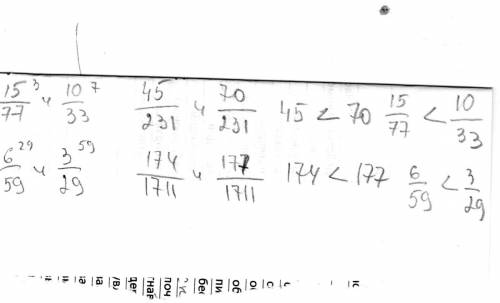 15/77 ³ и 10/33 ⁷ 45/231 и 70/231 45 < 70 15/77 < 10/33
6/59 ²⁹ и 3/29 ⁵⁹ 174/1711 и 177/1711 174 < 177 6/59 < 3/29